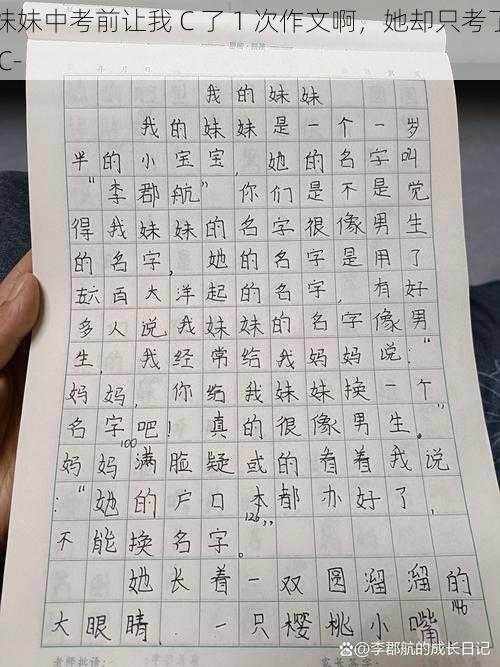 妹妹中考前让我 C 了 1 次作文啊，她却只考了
C-
我的妹妹
我的妹妹是一个一岁
半的小宝宝，她的名字叫
“李郡航”你们是不是觉
得我妹妹的名字很像男生
的名字，她的名字是用了
五六百大洋起的名字，有好
多人说我妹妹的名字像男
生，我经常给我妈妈说：“
妈妈，你给我妹妹换一个
名字吧！真的很像男生。”
100
妈妈满脸疑或的看着我说
：“她的户口本都办好了，
126
不能换名字。”
她长着一双圆溜溜的
大眼睛.一只樱桃小嘴
146
老师批语：
@李郡航的成长日记